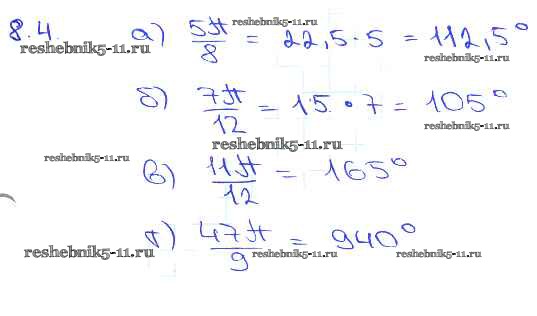 8.4. а) 5π/8 = 22,5·5 = 112,5°
reshebnik5-11.ru
reshebnik5-11.ru
reshebnik5-11.ru
б) 7π/12 = 15·7 = 105°
reshebnik5-11.ru
reshebnik5-11.ru
reshebnik5-11.ru
в) 11π/12 = 165°
г) 47π/9 = 940°
reshebnik5-11.ru
reshebnik5-11.ru
reshebnik5-11.ru